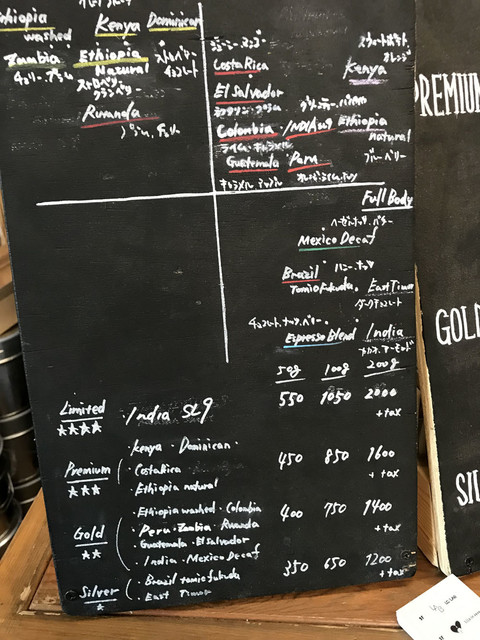 Ethiopia
washed
Kenya
Dominican
Zambia
Ethiopia
Natural
チェリー・プラム
ストロベリー
チョコレート
Rwanda
Costa Rica
スウィートポテト
オレンジ
Kenya
El Salvador
Colombia
India
Ethiopia
natural
ライム・キャラメル
ブルーベリー
Guatemala
Peru
キャラメル ナッツ
Full Body
ヘーゼルナッツ・バター
Mexico Decaf
Brazil
ハニー・ナッツ
Tomio Fukuda
East Timor
ダークチョコレート
チョコレート・ナッツ・ベリー
Espresso Blend
India
カカオ、アーモンド
50g 100g 200g
Limited
★★★★
・India SL9
550 1050 2000
+ tax
Premium
★★★
・Kenya ・Dominican・
・Costa Rica
・Ethiopia natural
450 850 1600
+ tax
Gold
★★
・Ethiopia washed ・Colombia
・Peru・Zambia・Rwanda
・Guatemala・El salvador
・India ・Mexico Decaf
400 750 1400
+ tax
Silver
★
・Brasil tomio fukuda
・East Timor
350 650 1200
+ tax
PREMIUM
GOL
SIL